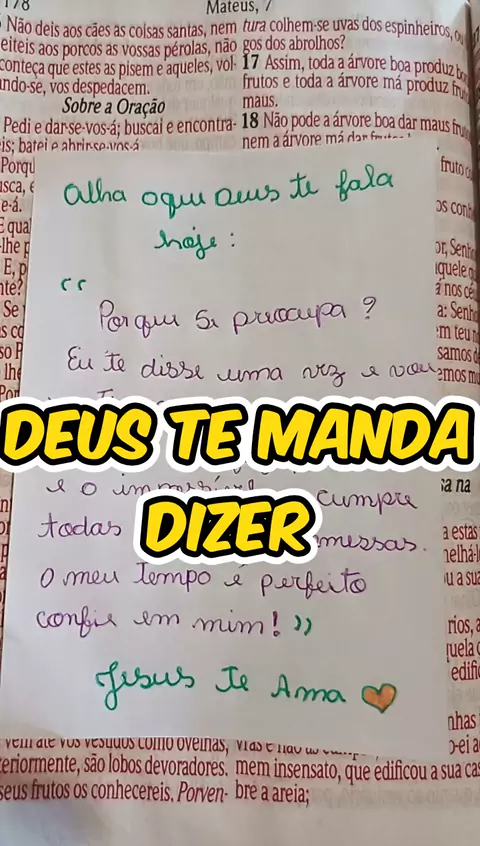 178
Mateus, 7
Não deis aos cães as coisas santas, nem
eiteis aos porcos as vossas pérolas, não
conteça que estes as pisem e aqueles, vol-
ando-se, vos despedacem.
Sobre a Oração
Pedi e dar-se-vos-á; buscai e encontra-
is; batei e abrir-se-vos-á
Porqu
usca, e
e-á.
E qua
lhe p
E, p
nte?
Se
as co
so P
lhe
Por
tura colhem-se uvas dos espinheiros, ou
gos dos abrolhos?
17 Assim, toda a árvore boa produz bons
frutos e toda a árvore má produz frutos
maus.
18 Não pode a árvore boa dar maus frutos
nem a árvore má dar frutos
fruto
or, Senh
aquele q
nos cé
a: Senho
em teu n
samos d
emos mu
Olha oque Deus te fala
hoje:
“
Por que se preocupa?
Eu te disse uma vez e vou
DEUS TE MANDA
DIZER
e o impossível cumpre
todas messas.
O meu tempo é perfeito
confie em mim!”
Jesus Te Ama
sa na
a estas
u a sua
rios, a
quela c
edific
nhas
o-ei a
vêm até vós vestidos como ovelhas,
teriormente, são lobos devoradores.
seus frutos os conhecereis. Porven-
mem insensato, que edificou a sua cas
bre a areia;